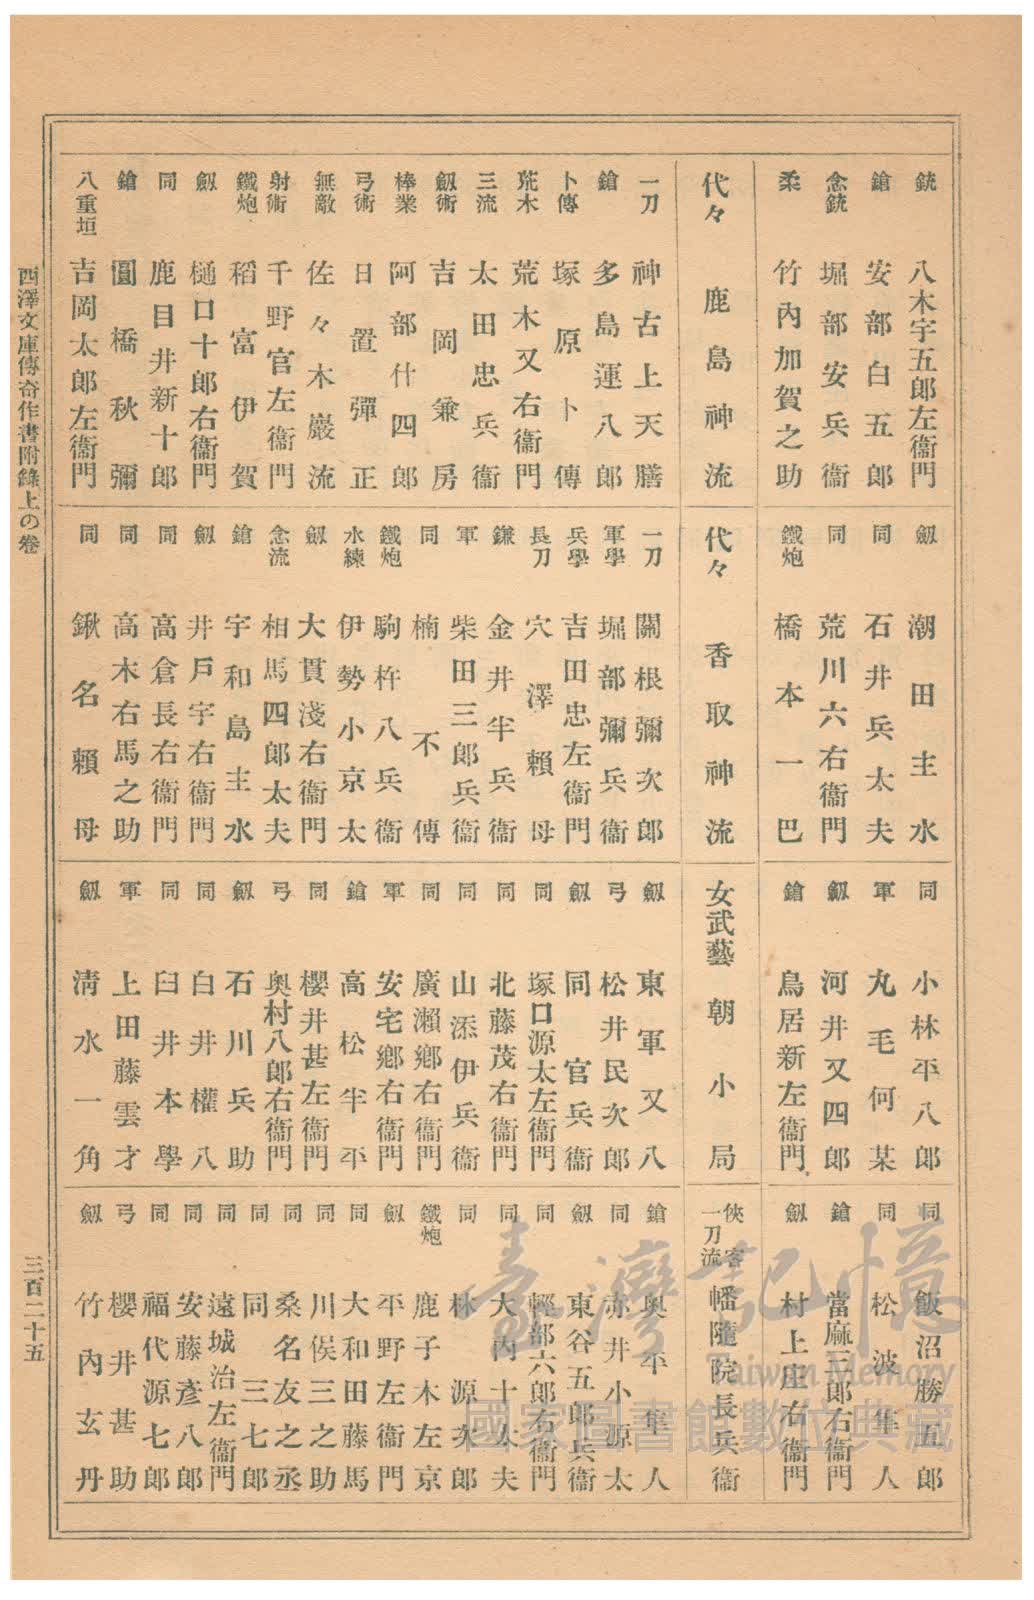 銃 八木宇五郎左衞門
鎗 安部白五郎
念銃 堀部安兵衞
柔 竹內加賀之助
代々 鹿島神流
一刀 神古上天膳
鎗 多島運八郎
卜傳 塚原卜傳
荒木 荒木又右衞門
三流 太田忠兵衞
劔術 吉岡兼房
棒業 阿部什四郎
弓術 日置彈正
無敵 佐々木巖流
射術 千野官左衞門
鐵炮 稻富伊賀
劔 樋口十郎右衞門
同 鹿目井新十郎
鎗 圓橋秋彌
八重垣 吉岡太郎左衞門
劔 潮田主水
同 石井兵太夫
同 荒川六右衞門
鐵炮 橋本一巴
代々 香取神流
一刀 關根彌次郎
軍學 堀部彌兵衞
兵學 吉田忠左衞門
長刀 穴澤賴母
鎌 金井半兵衞
軍 柴田三郎兵衞
同 楠不傳
鐵炮 駒杵八兵衞
水練 伊勢小京太
劔 大貫淺右衞門
念流 相馬四郎太夫
鎗 宇和島主水
劔 井戶宇右衞門
同 高倉長右衞門
同 高木右馬之助
同 鍬名賴母
同 小林平八郎
軍 丸毛何某
劔 河井又四郎
鎗 鳥居新左衞門
女武藝 朝小局
劔 東軍又八
弓 松井民次郎
劔 同官兵衞
同 塚口源太左衞門
同 北藤茂右衞門
同 山添伊兵衞
同 廣瀨鄕右衞門
軍 安宅鄕右衞門
鎗 高松半平
同 櫻井甚左衞門
弓 奧村八郎右衞門
劔 石川兵助
同 白井權八
同 臼井本學
軍 上田藤雲才
劔 淸水一角
同 飯沼勝五郎
同 松波隼人
鎗 當麻三郎右衞門
劔 村上庄右衞門
俠客一刀流 幡隨院長兵衞
鎗 奧平隼人
同 赤井小源太
劔 東谷五郎兵衞
同 輕部六郎右衞門
同 大內十太夫
同 林源次郎
鐵炮 鹿子木左京
劔 平野左衞門
同 大和田藤馬
同 川俣三之助
同 桑名友之丞
同 同三七郎
同 遠城治左衞門
同 安藤彥八郎
同 福代源七郎
弓 櫻井甚助
劔 竹內玄丹
西澤文庫傳奇作書附錄上の卷
三百二十五
臺灣記憶
Taiwan Memory
國家圖書館數位典藏